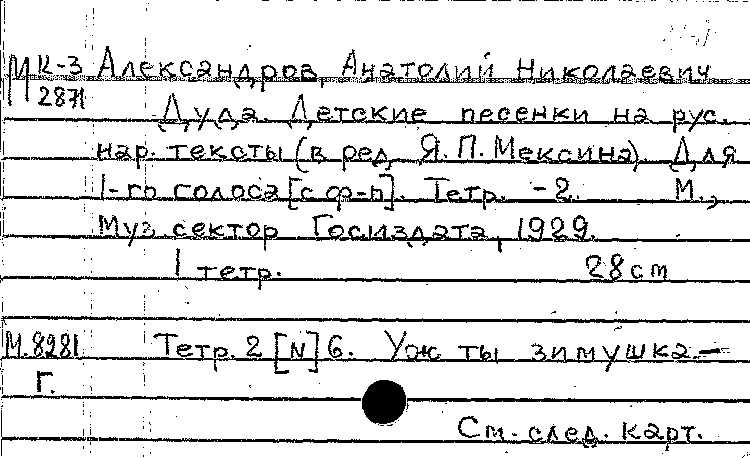 МК-3 Александров, Анатолий Николаевич
2871 Дуда. Детские песенки на рус.
нар. тексты (в ред. Я.П. Мексина). Для
1-го голоса [с ф-п]. Тетр. -2. М.,
Муз. сектор Госиздата, 1929.
1 тетр. 28 см
М.8281 Тетр. 2 [N] 6. Уж ты зимушка.—
Г.
См. след. карт.